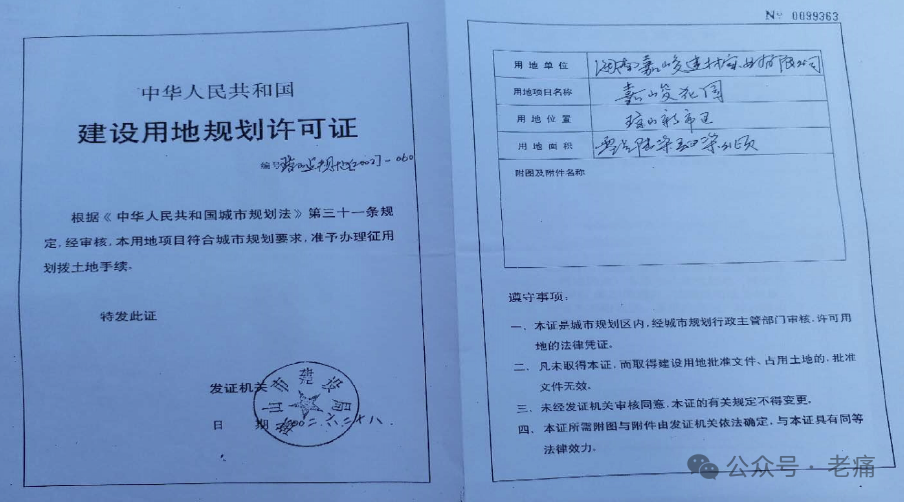 中华人民共和国
建设用地规划许可证
编号 [2002]-060
根据《中华人民共和国城市规划法》第三十一条规
定,经审核,本用地项目符合城市规划要求,准予办理征用
划拨土地手续。
特发此证
发证机关
山市建设局
日 期 2002.六.二十八.
№ 0099363
用地单位 海南嘉峻建材实业有限公司
用地项目名称 嘉峻花园
用地位置 琼山新市区
用地面积
附图及附件名称
遵守事项:
一、本证是城市规划区内,经城市规划行政主管部门审核,许可用
地的法律凭证。
二、凡未取得本证,而取得建设用地批准文件、占用土地的,批准
文件无效。
三、未经发证机关审核同意,本证的有关规定不得变更。
四、本证所需附图与附件由发证机关依法确定,与本证具有同等
法律效力。
公众号·老痛